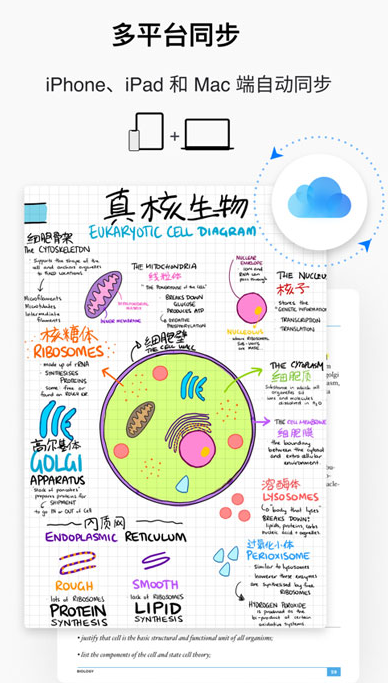 多平台同步
iPhone、iPad 和 Mac 端自动同步
+
真核生物
EUKARYOTIC CELL DIAGRAM
细胞骨架
THE CYTOSKELETON
Supports the shape of the
cell and anchors organelles
to fixed locations
Microfilaments
Microtubules
Intermediate
filaments
THE MITOCHONDRIA
线粒体
"The POWERHOUSE of the CELL"
BREAKS DOWN
GLUCOSE
PRODUCES ATP
OXIDATIVE
PHOSPHORYLATION
INNER MEMBRANE
NUCLEAR
ENVELOPE
can
pass through
NUCLEOLUS
where RIBOSOMAL
SUB-UNITS
are MADE
THE NUCLEUS
核子
Stores the
"GENETIC INFORMATION"
TRANSCRIPTION
TRANSLATION
核糖体
RIBOSOMES:
made up of rRNA
SYNTHESISES
PROTEINS
Some free or
found on ROUGH ER
细胞壁
THE CELL WALL
THE CYTOPLASM
细胞质
Substance in which all
organelles sit
ions and molecules
dissolved in H₂O
THE CELL MEMBRANE
细胞膜
the boundary
between the cytosol
and extra cellular
environment.
高尔基体
GOLGI
APPARATUS
prepares proteins for
SHIPMENT
to go IN or OUT of Cell
溶酶体
LYSOSOMES
"body that lyses"
BREAKS DOWN!
lipids, proteins, carbs
nucleic acid + organelles
内质网
ENDOPLASMIC RETICULUM
过氧化小体
PERIOXISOME
Similar to lysosomes
however these enzymes
are synthesised by free
RIBOSOMES
HYDROGEN PEROXIDE
is produced as the
bi-product of certain
oxidative systems
ROUGH
lots of RIBOSOMES
PROTEIN
SYNTHESIS
SMOOTH
lack of RIBOSOMES
LIPID
SYNTHESIS
• justify that cell is the basic structural and functional unit of all organisms;
• list the components of the cell and state cell theory;
BIOLOGY